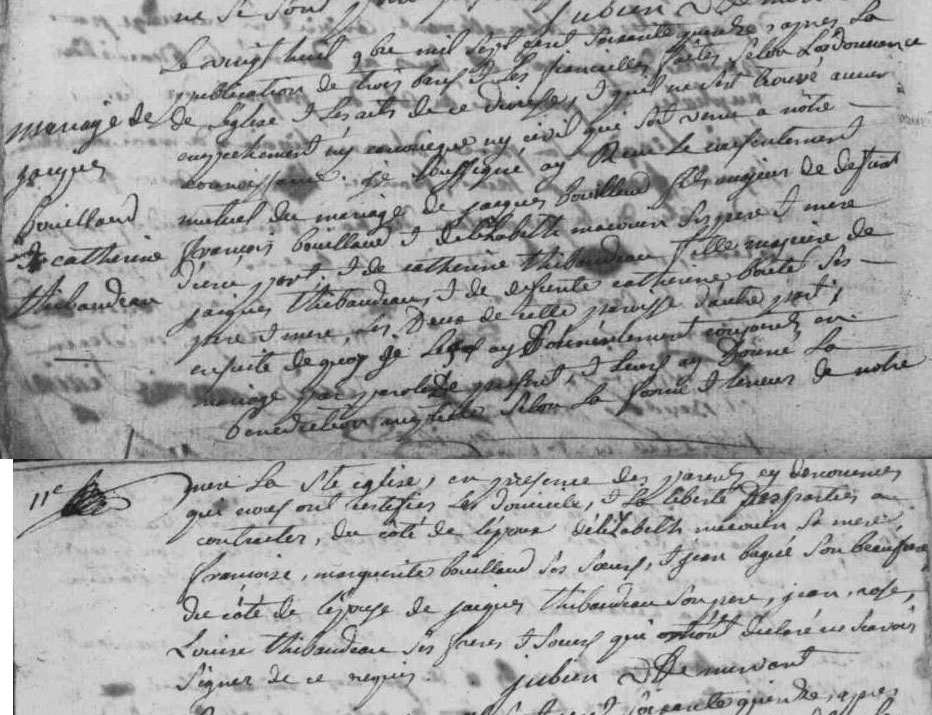 ne se sont
jubien
Le vingt huit 9bre mil sept cent soixante quinze, apres la
publication de trois bans et les fiancailles faites selon L'ordonnance
de l'eglise et les arts de ce diocese, et quil ne s'est trouvé aucun
empechement ny canonique ny civil qui soit venu a nôtre
connoissance. je soussigné ay Recu le consentement
mutuel du mariage de jacques bouillaud fils majeur de defunt
françois bouillaud et d'elizabeth macouin ses pere et mere
d'une part, et de catherine thibaudeau fille majeure de
jacques thibaudeau, et de defunte catherine ses
pere et mere, Les Deux de cette paroisse d'autre part,
ensuite de quoy je Les ay Solennellement conjoints en
mariage par parole de present, et Leurs ay Donné La
benediction nuptiale selon La forme et teneur de notre
mariage de
jacques
bouillaud
& catherine
thibaudeau
11e
mere La Ste eglise, en presence des parents cy denommés
qui nous ont certifiés Le domicile, et La liberté des parties a
contracter, du côté de l'époux d'elizabeth macouin sa mere
françoise, marguerite bouillaud ses sœurs, et jean son beaufrere
du côté de l'épouse de jacques thibaudeau son pere, jean, rose,
Louise thibaudeau ses freres et sœurs qui ont déclaré ne scavoir
signer de ce requis. jubien
soixante quinze, apres